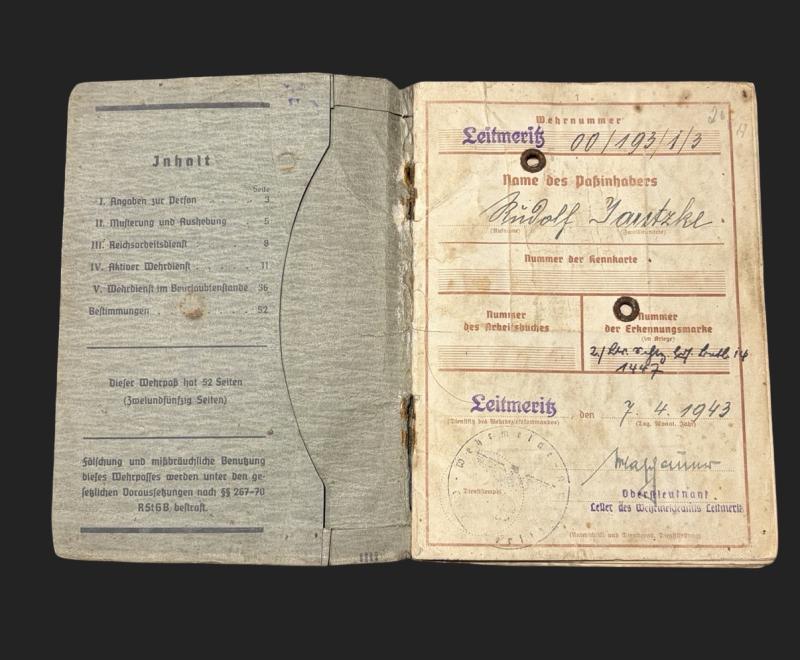 Inhalt
Seite
I. Angaben zur Person . . . . 3
II. Musterung und Aushebung 5
III. Reichsarbeitsdienst . . . 8
IV. Aktiver Wehrdienst . . . . 11
V. Wehrdienst im Beurlaubtenstande 36
Bestimmungen . . . . 52
Dieser Wehrpaß hat 52 Seiten
(Zweiundfünfzig Seiten)
Fälschung und mißbräuchliche Benutzung
dieses Wehrpasses werden unter den ge-
setzlichen Voraussetzungen nach §§ 267-70
RStGB bestraft.
1
Wehrnummer
Leitmeritz 00/193/1/3
Name des Paßinhabers
Rudolf
(Rufname) (Familienname)
Nummer der Kennkarte
Nummer
des Arbeitsbuches
Nummer
der Erkennungsmarke
(im Kriege)
1447
Leitmeritz, den 7. 4. 1943
(Dienstsitz des Wehrbezirkskommandos) (Tag, Monat, Jahr)
Dienststempel
Oberstleutnant
Leiter des Wehrmeldeamts Leitmeritz
(Unterschrift und Dienstgrad, Dienststellung)